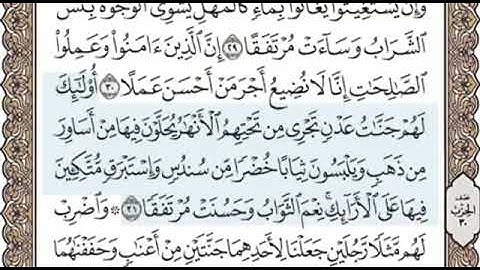 وَإِن يَسْتَغِيثُوا۟ يُغَاثُوا۟ بِمَآءٍ كَٱلْمُهْلِ يَشْوِى ٱلْوُجُوهَ بِئْسَ
ٱلشَّرَابُ وَسَآءَتْ مُرْتَفَقًا ٢٩ إِنَّ ٱلَّذِينَ ءَامَنُوا۟ وَعَمِلُوا۟
ٱلصَّٰلِحَٰتِ إِنَّا لَا نُضِيعُ أَجْرَ مَنْ أَحْسَنَ عَمَلًا ٣٠ أُو۟لَٰٓئِكَ
لَهُمْ جَنَّٰتُ عَدْنٍ تَجْرِى مِن تَحْتِهِمُ ٱلْأَنْهَٰرُ يُحَلَّوْنَ فِيهَا مِنْ أَسَاوِرَ
مِن ذَهَبٍ وَيَلْبَسُونَ ثِيَابًا خُضْرًا مِّن سُندُسٍ وَإِسْتَبْرَقٍ مُّتَّكِـِٔينَ
فِيهَا عَلَى ٱلْأَرَآئِكِ ۚ نِعْمَ ٱلثَّوَابُ وَحَسُنَتْ مُرْتَفَقًا ٣١ ۞ وَٱضْرِبْ
لَهُم مَّثَلًا رَّجُلَيْنِ جَعَلْنَا لِأَحَدِهِمَا جَنَّتَيْنِ مِنْ أَعْنَٰبٍ وَحَفَفْنَٰهُمَا
نصف
الحزب
٣٠